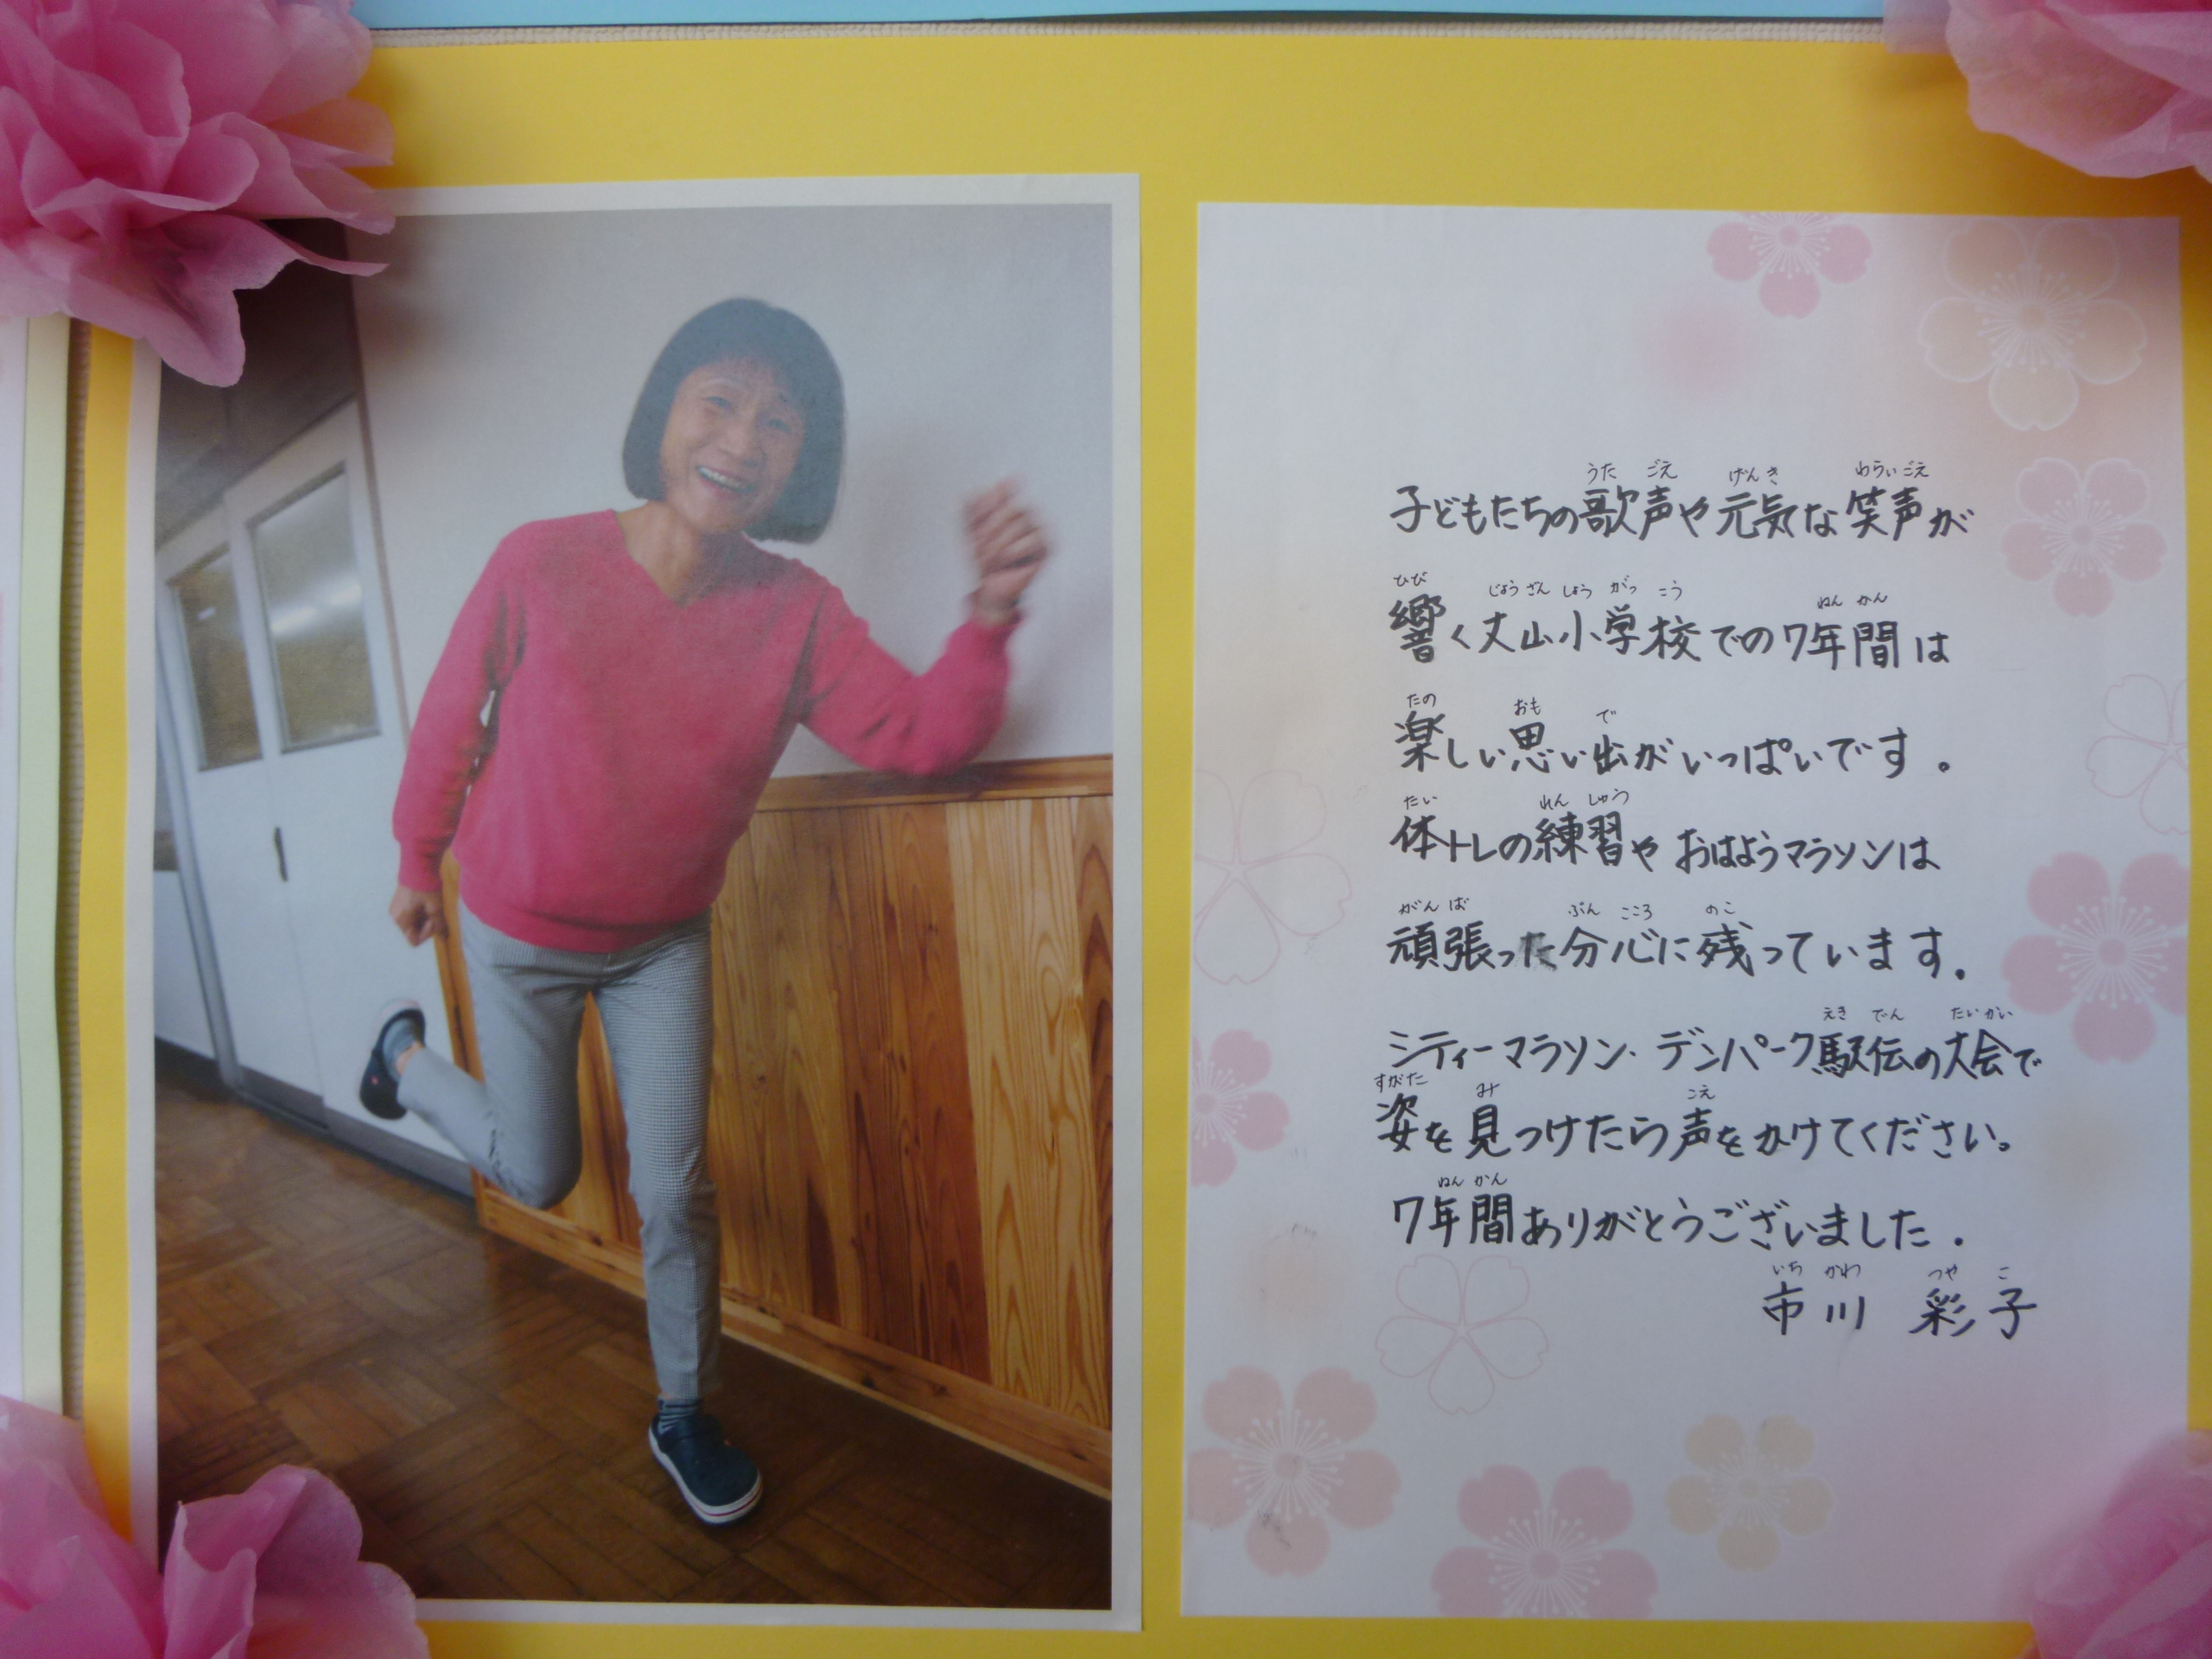 子どもたちの歌声や元気な笑声が
響く丈山小学校での7年間は
楽しい思い出がいっぱいです。
体トレの練習や おはようマラソンは
頑張った分心に残っています。
シティーマラソン・デンパーク駅伝の大会で
姿を見つけたら声をかけてください。
7年間ありがとうございました。
市川 彩子